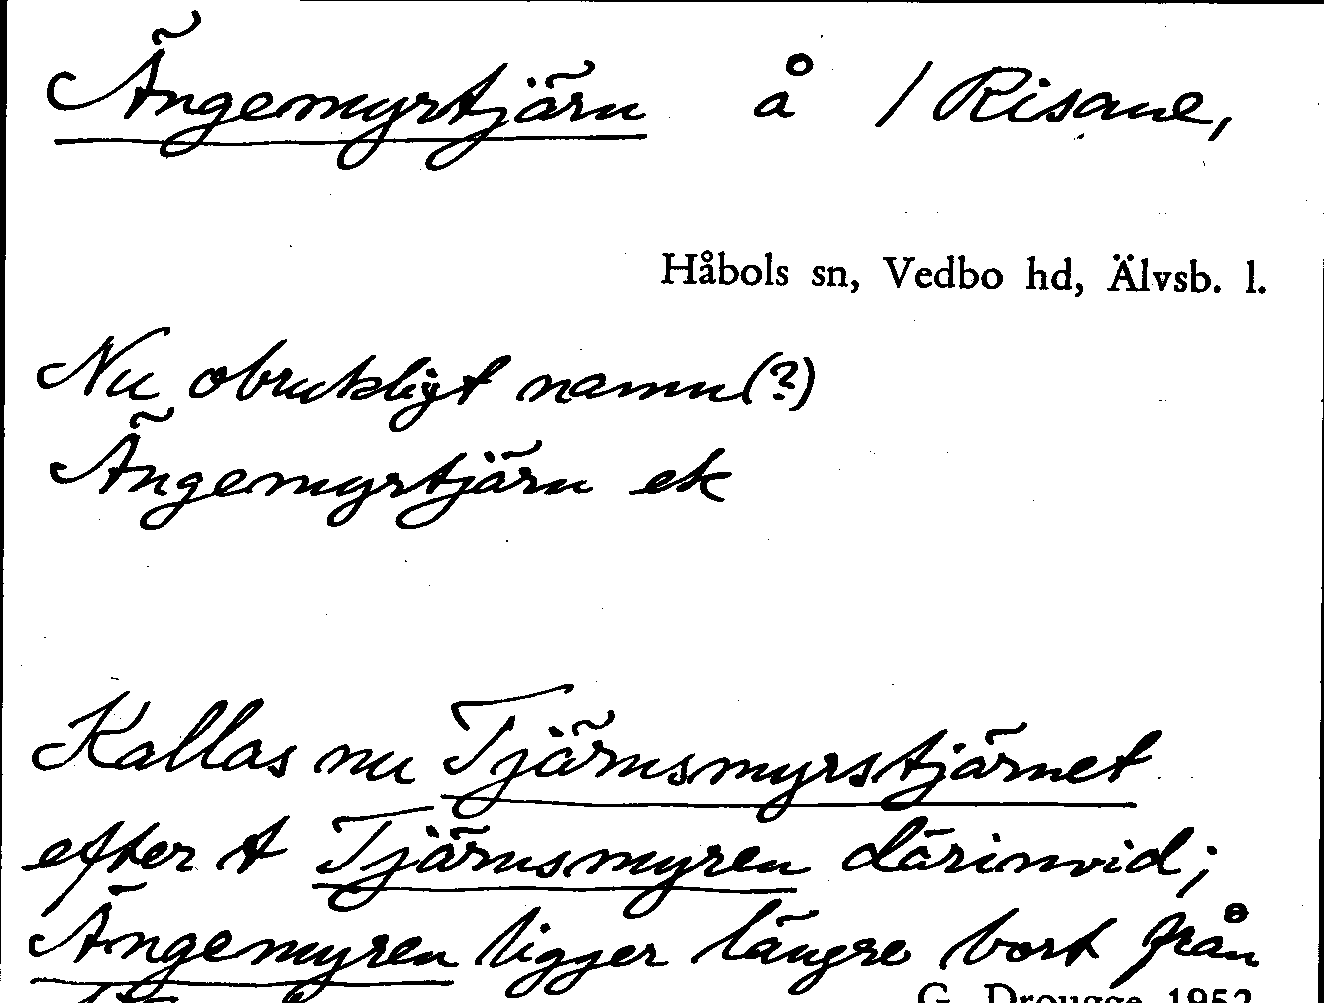 Ängemyrtjärn å 1 Risane,
Håbols sn, Vedbo hd, Älvsb. l.
Nu obrukligt namn(?)
Ängemyrtjärn ek
Kallas nu Tjärnsmyrstjärnet
efter t Tjärnsmyren därinvid;
Ängemyren ligger längre bort från
G. Drougge 1952